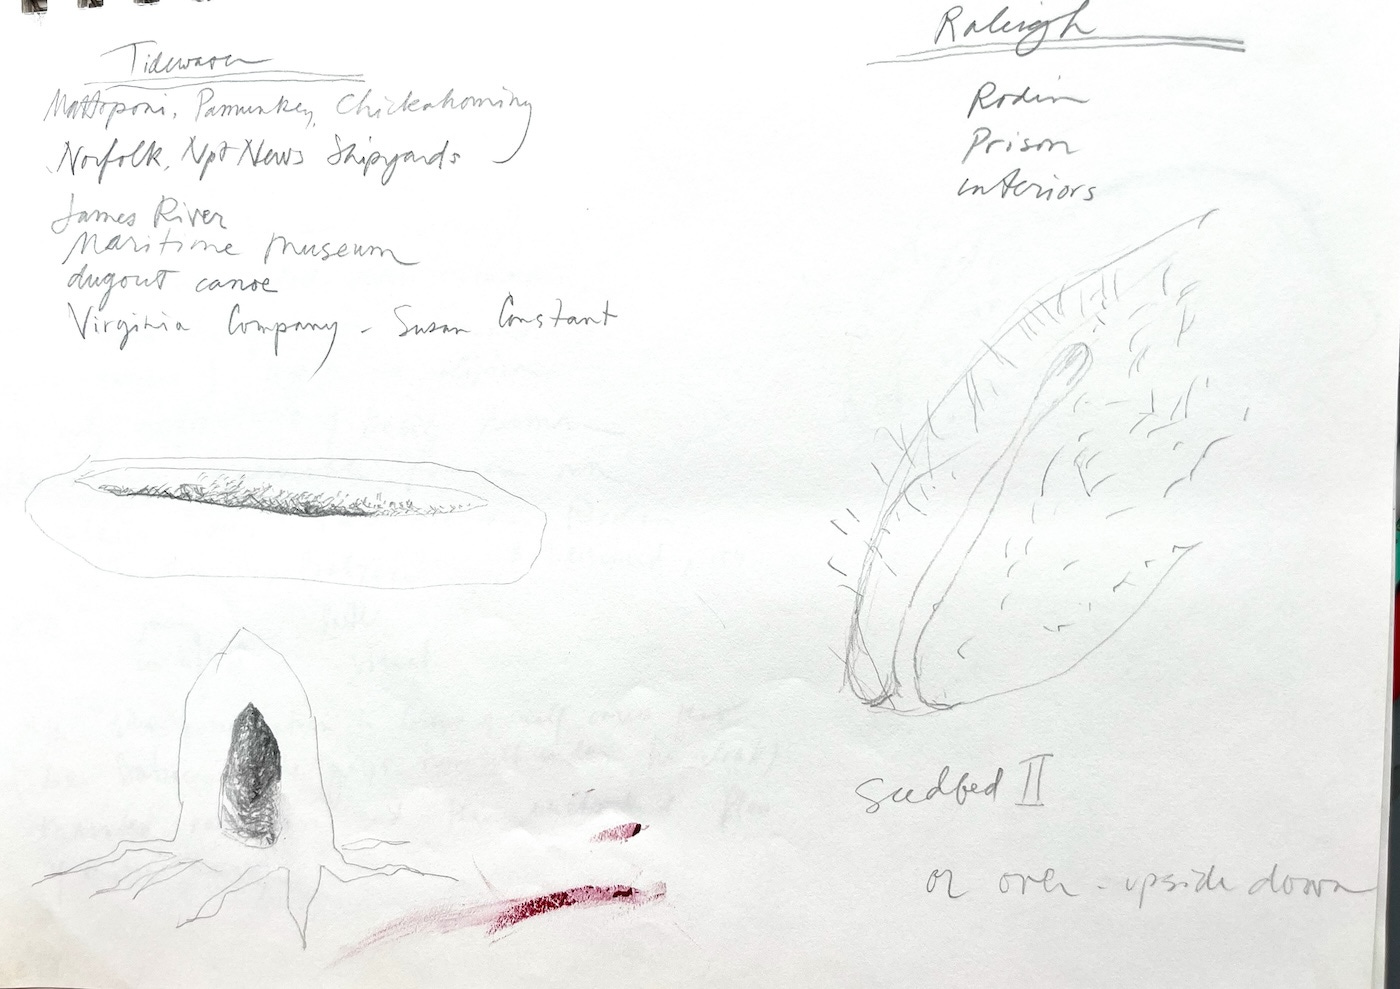 Tidewater
Mattaponi, Pamunkey, Chickahominy
Norfolk, Npt News Shipyards
James River
Maritime museum
dugout canoe
Virginia Company - Susan Constant
Raleigh
Rodin
Prison
interiors
Seedbed II
or over - upside down